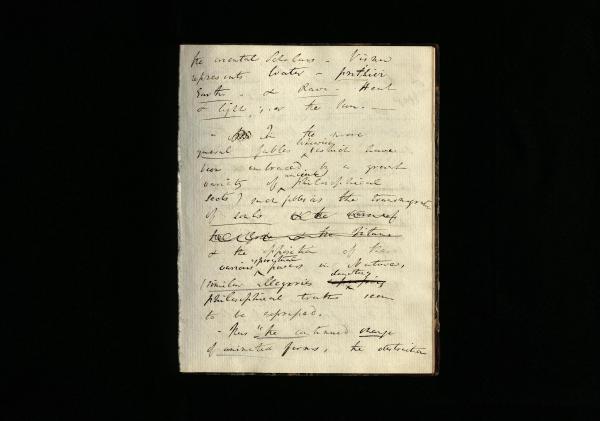 the oriental Scholars - Visnu
represents Water - prithivi
Earth - & Rava - Heat
& light, or the Sun. -
- In the more
general fables likewise (which have
been embraced by a great
variety of ancient philosophical
sects) such fables as the transmigration
of souls & the
the & the Titans
& the opposition of the
various opposition powers in Nature,
(similar allegories denoting
philosophical truths seem
to be expressed.
- Thus "the continued change
of animated forms, the destruction